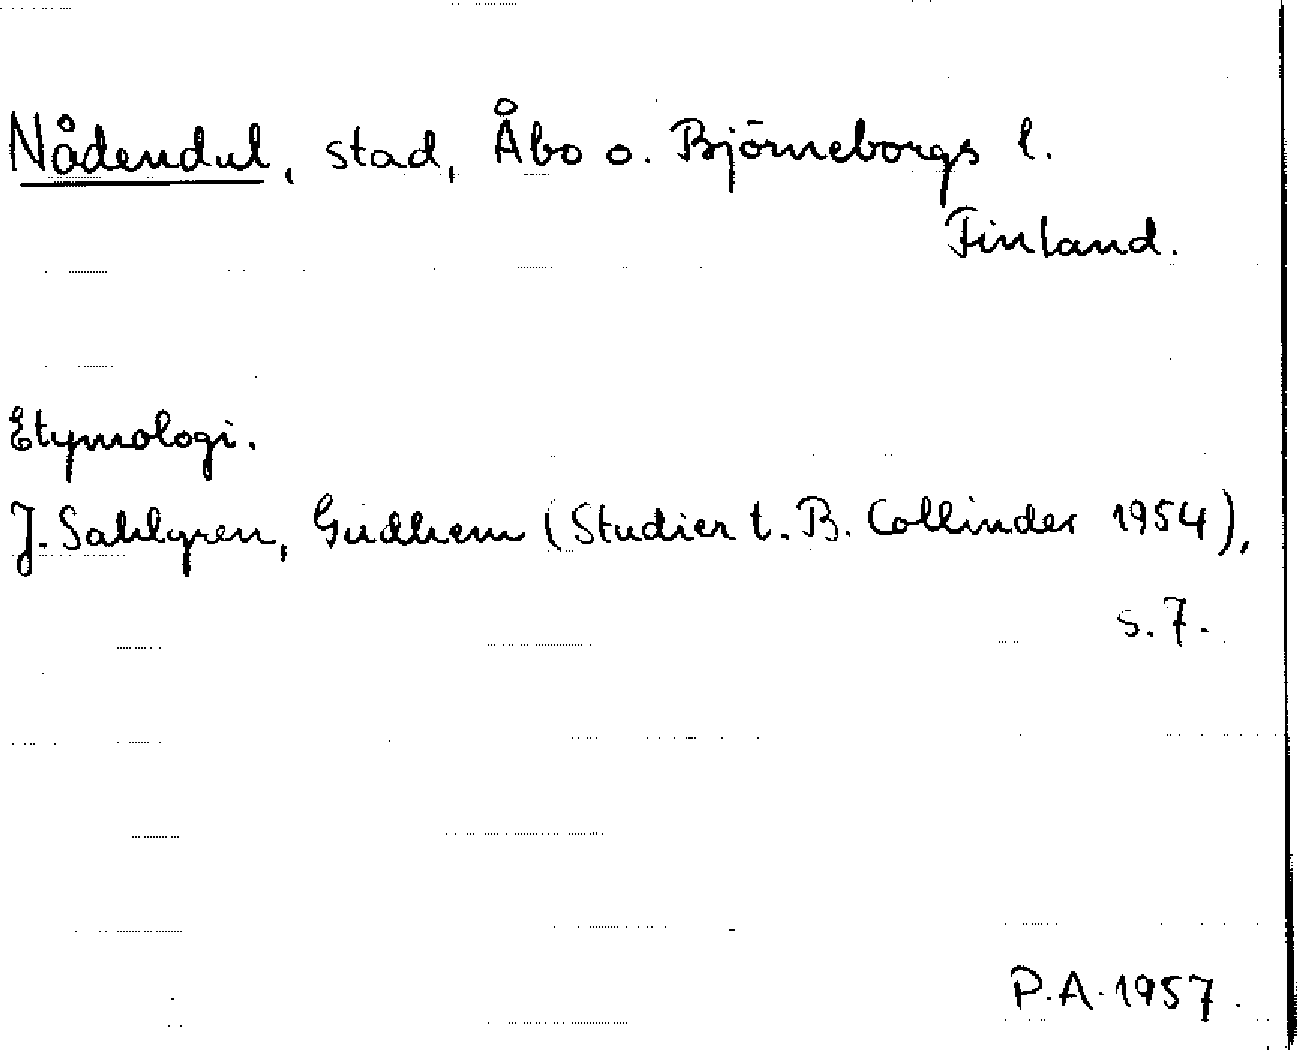 Nådendal, stad, Åbo o. Björneborgs l.
Finland.
Etymologi.
J. Sahlgren, Gudhem (Studier t. B. Collinder 1954),
s. 7.
P.A. 1957.